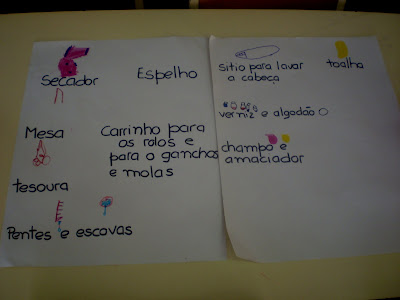 Secador
Espelho
Mesa
Carrinho para
os rolos e
para o ganchos
e molas
tesoura
Pentes e escovas
Sitio para lavar
a cabeça
toalha
verniz e algodão
champô e
amaciador